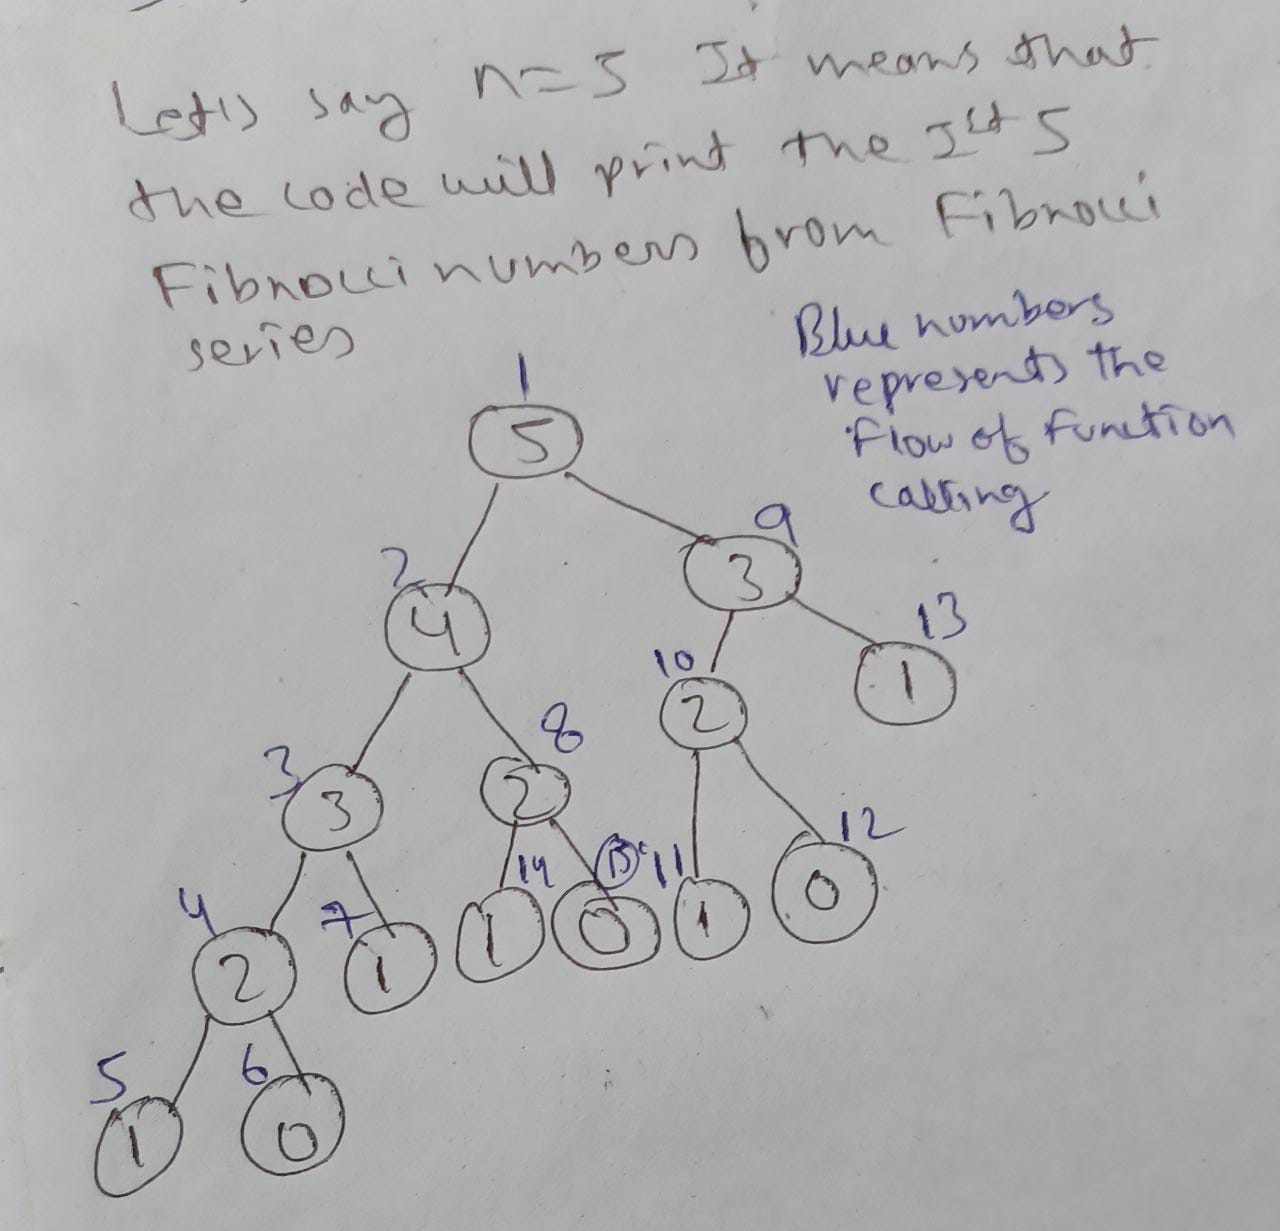 Let's say n=5 It means that
the code will print the Ist 5
Fibnocci numbers from Fibnocci
series
Blue numbers
represents the
flow of function
calling
1
5
9
2
3
4
13
10
1
8
2
3
3
2
12
14
15
11
4
7
0
2
1
1
0
1
5
6
1
0